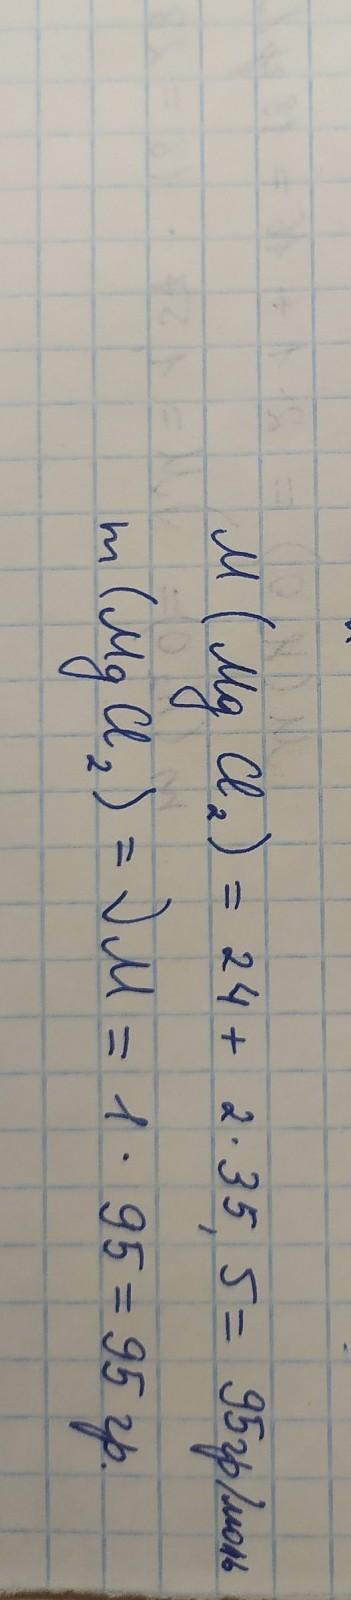 M (Mg Cl₂) = 24 + 2·35,5 = 95гр/моль
m (Mg Cl₂) = νM = 1 · 95 = 95 гр.